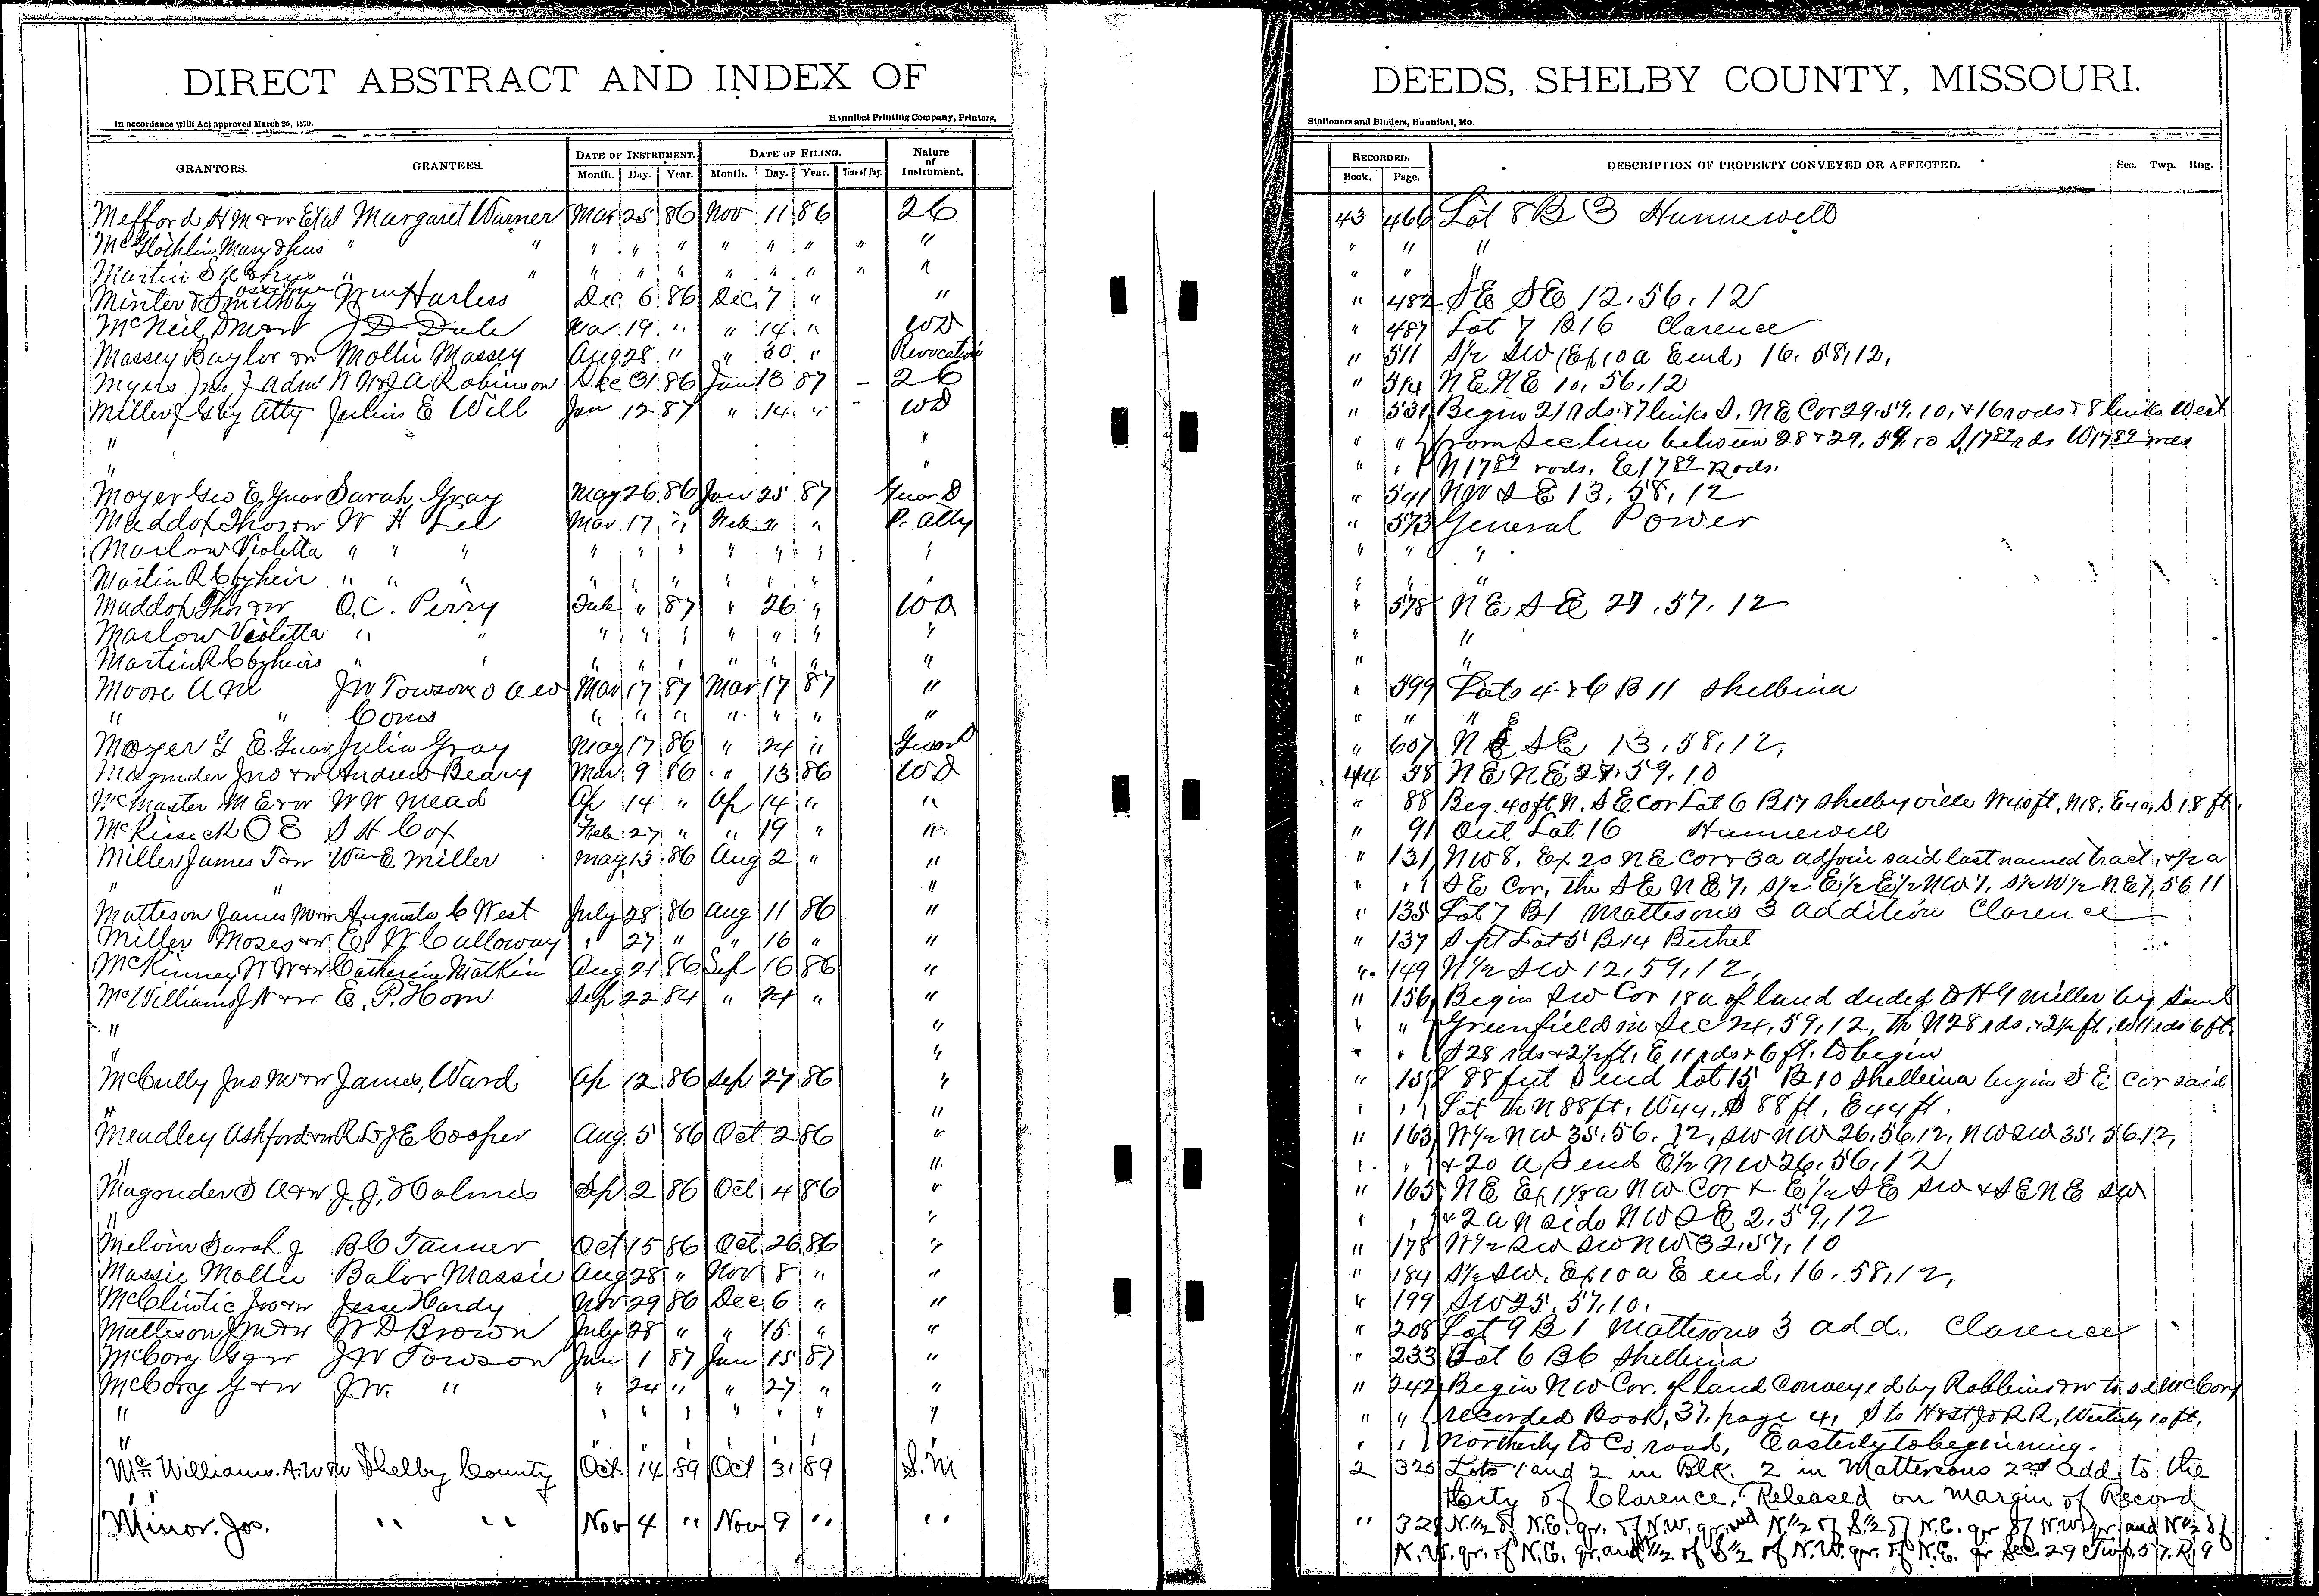 DIRECT ABSTRACT AND INDEX OF DEEDS, SHELBY COUNTY, MISSOURI.
In accordance with Act approved March 25, 1870. Hannibal Printing Company, Printers, Stationers and Binders, Hannibal, Mo.
GRANTORS. GRANTEES. DATE OF INSTRUMENT. DATE OF FILING. Nature of Instrument. RECORDED. DESCRIPTION OF PROPERTY CONVEYED OR AFFECTED. Sec. Twp. Rng.
Month. Day. Year. Month. Day. Year. Time of Day. Book. Page.
Mefford H M & w Etal Margaret Warner Mar 25 86 Nov 11 86 26 43 466 Lot 8 B 3 Hunnewell
McGlothlin Mary & hus " " " " " " " " " " " " "
Martin S A & hus " " " " " " " " " " " "
Minter & Smith by Wm Harless Dec 6 86 Dec 7 " " " 482 SE SE 12.56.12
McNeil D M & w J D Dale Mar 19 " " 14 " WD " 487 Lot 7 B16 Clarence
Massey Baylor & w Mollie Massey Aug 28 " " 30 " Revocation " 511 S½ SW (Ex 10 a E end) 16.58.12.
Myers Jno J Adm N M & J A Robinson Dec 31 86 Jan 13 87 – 26 " 514 NE NE 10.56.12
Miller J G by Atty Julius E Will Jan 12 87 " 14 " WD " 531 Begin 21 rds. & 7 links S. NE Cor 29.59.10, & 16 rods & 8 links West
" " " " from Sec line between 28 & 29.59.10 S, 17 89 rds W 17 89 rods
" " " " N 17 89 rods. E 17 89 Rods.
Moyer Geo E Guar Sarah Gray May 26 86 Jan 25 87 Guar D " 541 NW SE 13.58.12
Maddox Thos & w W H Lee Mar 17 " Feb " " P. Atty " 573 General Power
Marlow Violetta " " " " " " " " " " " " "
Martin R C by heir " " " " " " " " " " " "
Maddox Thos & w O.C. Perry Feb " 87 " 26 " WD " 578 NE SE 27.57.12
Marlow Violetta " " " " " " " " " " "
Martin R C by heirs " " " " " " " " " " "
Moore A M J W Towson & Mar 17 87 Mar 17 87 " " 599 Lots 4 & 6 B 11 Shelbina
" " Coms " " " " " " " " " "
Moyer G E. Guar Julia Gray May 17 86 " 24 " Guar D " 607 NE SE 13.58.12,
Magruder Jno & w Andrew Beary Mar 9 86 " 13 86 WD 44 38 NE NE 27.59.10
McMaster M E & w W W Mead Ap 14 " Ap 14 " " " 88 Beg. 40 ft N. SE Cor Lot 6 B17 Shelbyville W 40 ft, N 18, E 40, S 18 ft.
McKissick O E S H Cox Feb 27 " " 19 " " " 91 Out Lot 16 Hunnewell
Miller James T & w Wm E Miller May 13 86 Aug 2 " " " 131 NW 8, Ex 20 NE Cor & 3 a adjoin said last named tract, & ½ a
" " " " " SE Cor, the SE NE 7, S½ E½ E½ NW 7, S½ W½ NE 7, 56 11
Matteson James M & w Augusta C West July 28 86 Aug 11 86 " " 135 Lot 7 B1 Mattesons 3 addition Clarence
Miller Moses & w E W Calloway " 27 " " 16 " " " 137 S pt Lot 5 B14 Bethel
McKinney W W & w Catherine Matkin Aug 21 86 Sep 16 86 " " 149 N½ SW 12.59.12,
McWilliams J N & w E. P. Horn Sep 22 84 " 24 " " " 156 Begin SW Cor 18 a of land deeded D H G Miller by Saml
" " " " Greenfield in Sec 24.59.12, th N 28 rds. & 2½ ft, W 11 rds 6 ft,
" " " " S 28 rds & 2½ ft, E 11 rds & 6 ft. to begin
McCully Jno M & w James Ward Ap 12 86 Sep 27 86 " " 158 88 feet S end lot 15 B 10 Shelbina begin SE Cor said
" " " " Lot th N 88 ft, W 44, S 88 ft, E 44 ft.
Meadley Ashford & w R L & J E Cooper Aug 5 86 Oct 2 86 " " 163 W½ NW 35.56.12, SW NW 26.56.12, NW SW 35.56.12,
" " " " & 20 a S end E½ NW 26.56.12
Magruder D A & w J. J. Holmes Sep 2 86 Oct 4 86 " " 165 NE Ex 1⅛ a NW Cor & E½ SE SW & SE NE SW
" " " " & 2 a N side NW SE 2.59.12
Melvin Sarah J B C Tanner Oct 15 86 Oct 26 86 " " 178 W½ SW SW NW 32.57.10
Massie Mollie Balor Massie Aug 28 " Nov 8 " " " 184 S½ SW. Ex 10 a E end, 16.58.12,
McClintic Jno & w Jesse Hardy Nov 29 86 Dec 6 " " " 199 SW 25.57.10.
Matteson J M & w W D Brown July 28 " " 15 " " " 208 Lot 9 B 1 Mattesons 3 add. Clarence
McCory G & w J W Towson Jan 1 87 Jan 15 87 " " 233 Lot 6 B6 Shelbina
McCory G & w J.W. " " 24 " " 27 " " " 242 Begin NW Cor. of land Conveyed by Robbins & w to sd McCory
" " " " " " " " " " recorded Book, 37, page 41 S to H & St Jo R R, Westerly 10 ft,
" " " " " " " " " " Northerly to Co road, Easterly to beginning.
McWilliams. A.W & w Shelby County Oct. 14 89 Oct 31 89 S.M 2 325 Lots 1 and 2 in Blk. 2 in Mattersons 2nd add. to the
" City of Clarence. Released on Margin of Record
Minor. Jos. " " Nov 4 " Nov 9 " " " 328 N.½ of N.E. qr. of N.W. qr. and N½ of S.½ of N.E. qr of N.W. qr. and N½ of
N.W. qr. of N.E. qr. and N½ of S½ of N.W. qr. of N.E. qr Sec. 29 Twp. 57. R 9